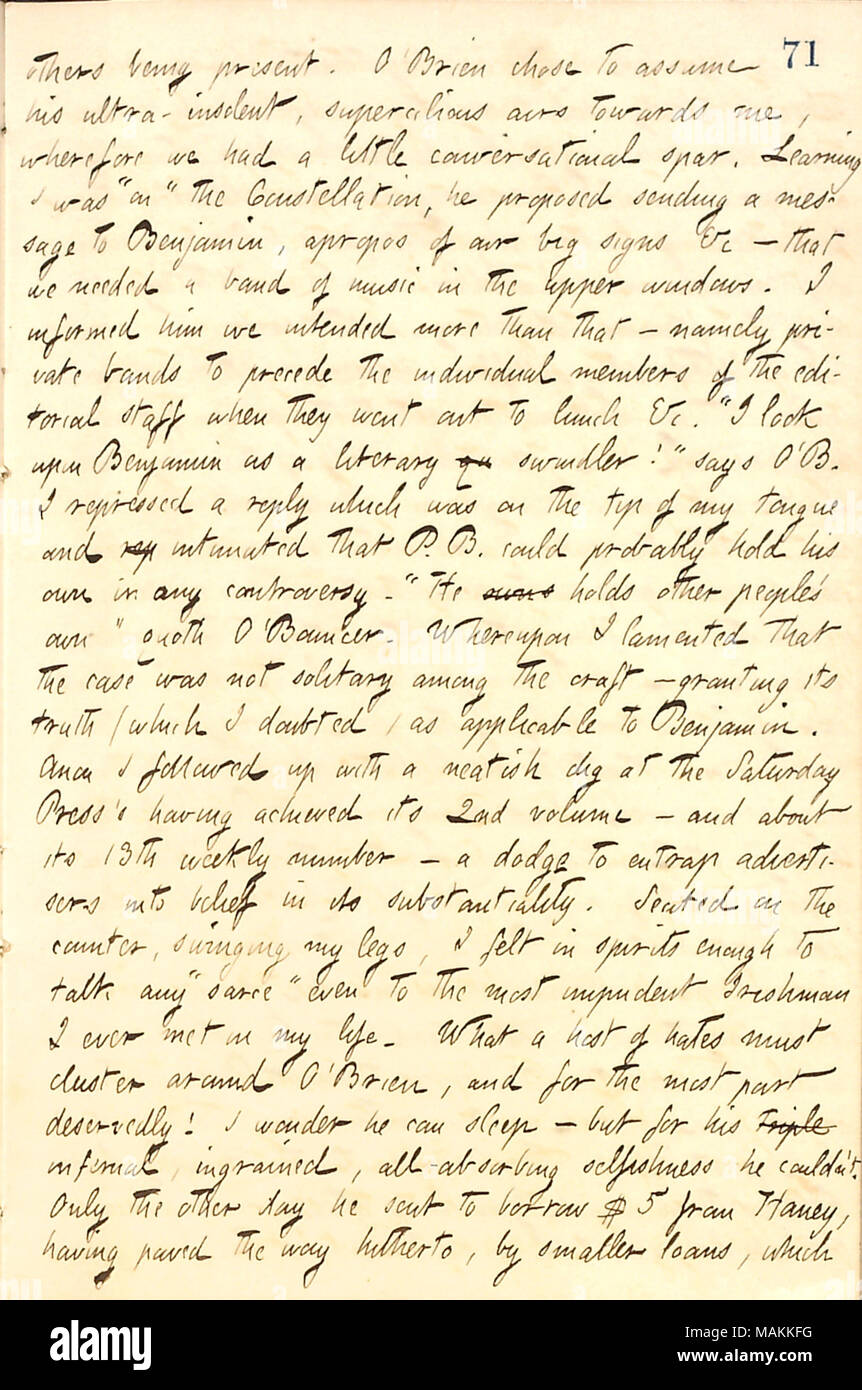 71
others being present. O'Brien chose to assume
his ultra-insolent, supercilious airs towards me,
wherefore we had a little conversational spar. Learning
I was "on" the Constellation, he proposed sending a mes-
sage to Benjamin, apropos of our big signs &c — that
we needed a band of music in the upper windows. I
informed him we intended more than that — namely pri-
vate bands to precede the individual members of the edi-
torial staff when they went out to lunch &c. "I look
upon Benjamin as a literary swindler!" says O'B.
I repressed a reply which was on the tip of my tongue
and rep intimated that P. B. could probably hold his
own in any controversy. "He owns holds other people's
own" quoth O'Bouncer. Whereupon I lamented that
the case was not solitary among the craft — granting its
truth (which I doubted) as applicable to Benjamin.
Anon I followed up with a neatish dig at the Saturday
Press's having achieved its 2nd volume — and about
its 13th weekly number — a dodge to entrap adverti-
sers into belief in its substantiality. Seated on the
counter, swinging my legs, I felt in spirits enough to
talk any "sarce" even to the most impudent Irishman
I ever met in my life. What a host of hates must
cluster around O'Brien, and for the most part
deservedly! I wonder he can sleep — but for his triple
infernal, ingrained, all-absorbing selfishness he couldn't.
Only the other day he sent to borrow $5 from Haney,
having paved the way hitherto, by smaller loans, which
alamy
Image ID: MAKKFG
www.alamy.com